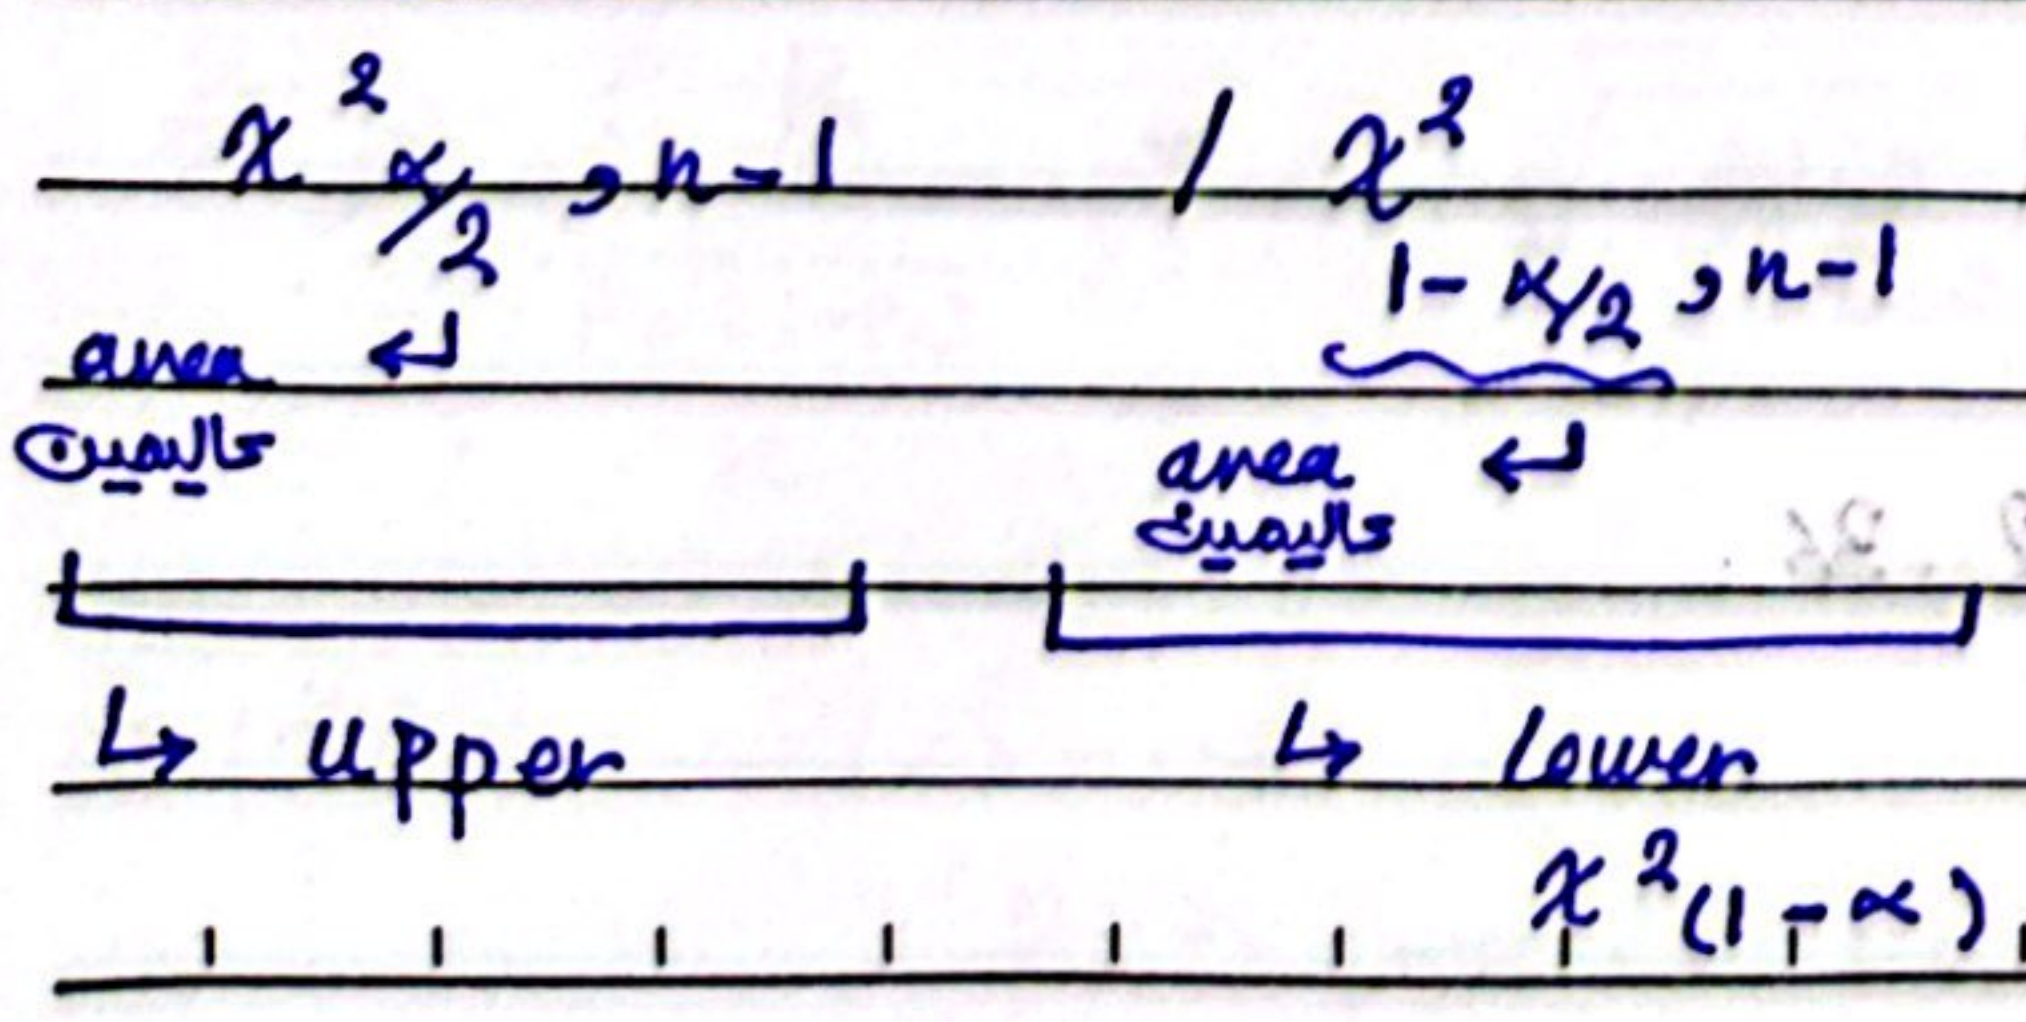 χ² α/2 , n-1 / χ² 1-α/2 , n-1
area ↵
عاليمين
area ↵
عاليمين
↳ upper ↳ lower
χ²(1-α)